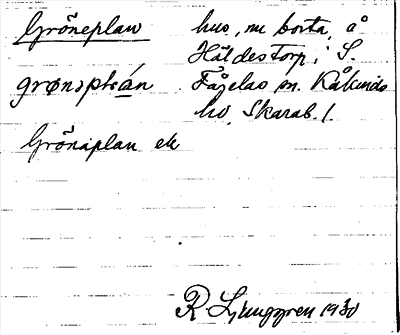 Gröneplan hus, nu borta, å
Häldestorp i S.
grønəplá̱n Fågelås sn. Kåkinds
hd, Skarab. l.
Grönaplan ek
R Ljunggren 1930